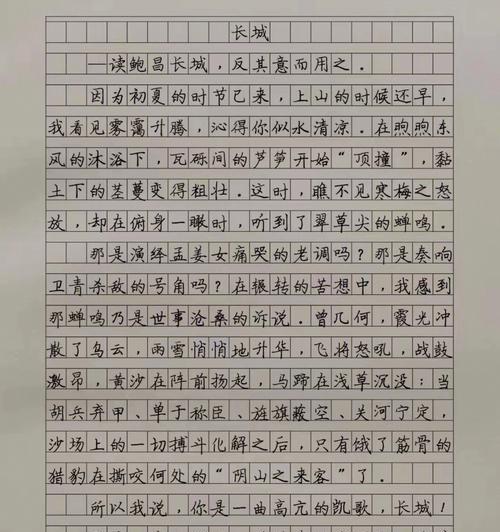 长城
—读鲍昌长城，反其意而用之．
因为初夏的时节已来，上山的时候还早，
我看见雾霭升腾，沁得你似水清凉．在煦煦东
风的沐浴下，瓦砾间的芦笋开始“顶撞”，黏
土下的茎蔓变得粗壮．这时，瞧不见寒梅之怒
放，却在俯身一瞰时，听到了翠草尖的蝉鸣．
那是演绎孟姜女痛哭的老调吗？那是奏响
卫青杀敌的号角吗？在辗转的苦想中，我感到
那蝉鸣乃是世事沧桑的诉说．曾几何，霞光冲
散了乌云，雨雪悄悄地升华，飞将怒吼，战鼓
激昂，黄沙在阵前扬起，马蹄在浅草沉没：当
胡兵弃甲、单于称臣、旌旗蔽空、关河宁定，
沙场上的一切搏斗化解之后，只有饿了筋骨的
猎豹在撕咬何处的“阴山之来客”了．
所以我说，你是一曲高亢的凯歌，长城！